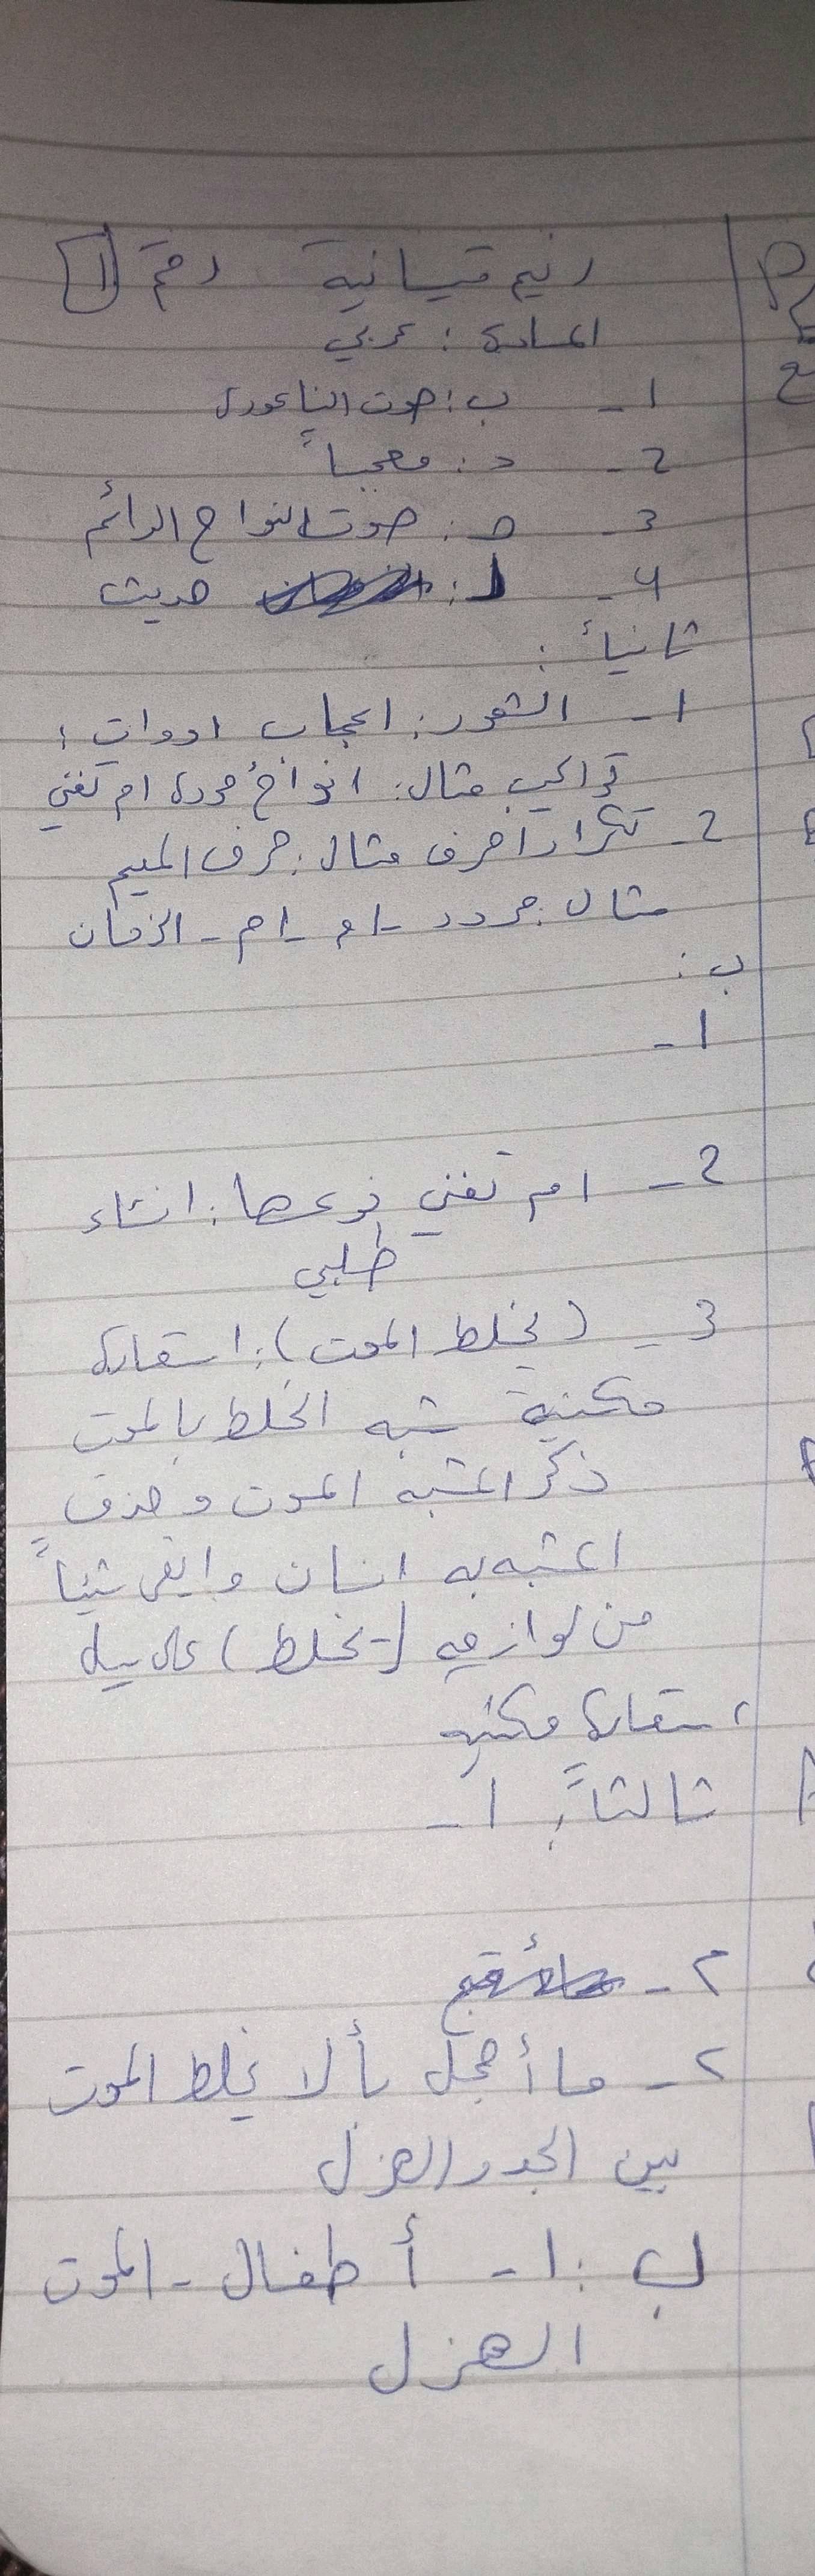 رنيم قيسانية رقم 1
المادة : عربي
1 - ب : صوت الناعورة
2 - د : معجباً
3 - ج : صوت النواح الدائم
4 - د : حديث
ثانياً :
1 - الشعور : اعجاب ادوات :
تراكيب مثال : انواحُ مورد ام تغني
2 - تكرار احرف مثال : حرف الميم
مثال : مورد - ام - ام - الزمان
ب :
1 -
2 - ام تغني نوعها : انشاء
طلبي
3 - (يخلط الموت) : استعارة
مكنية شبه الخلط بالموت
ذكر المشبه الموت و حذف
المشبه به انسان وابقى شيئاً
من لوازمه (يخلط) على سبيل
استعارة مكنيه
ثالثاً : 1 -
٢ -
٢ - ما أجمل بألا يخلط الموت
بين الجد والهزل
ب : 1 - أطفال - الموت
الهزل